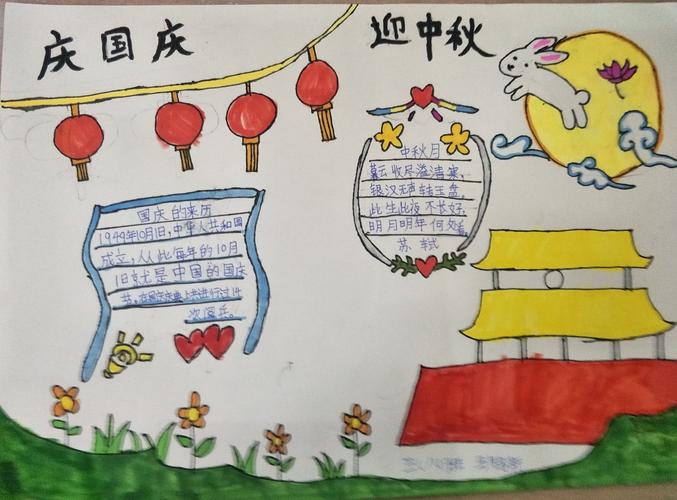 庆国庆
迎中秋
国庆的来历
1949年10月1日，中华人共和国
成立，从此每年的10月
1日就是中国的国庆
节，在国庆庆典上共进行过14
次阅兵。
中秋月
暮云收尽溢清寒，
银汉无声转玉盘，
此生此夜不长好，
明月明年何处看
苏轼